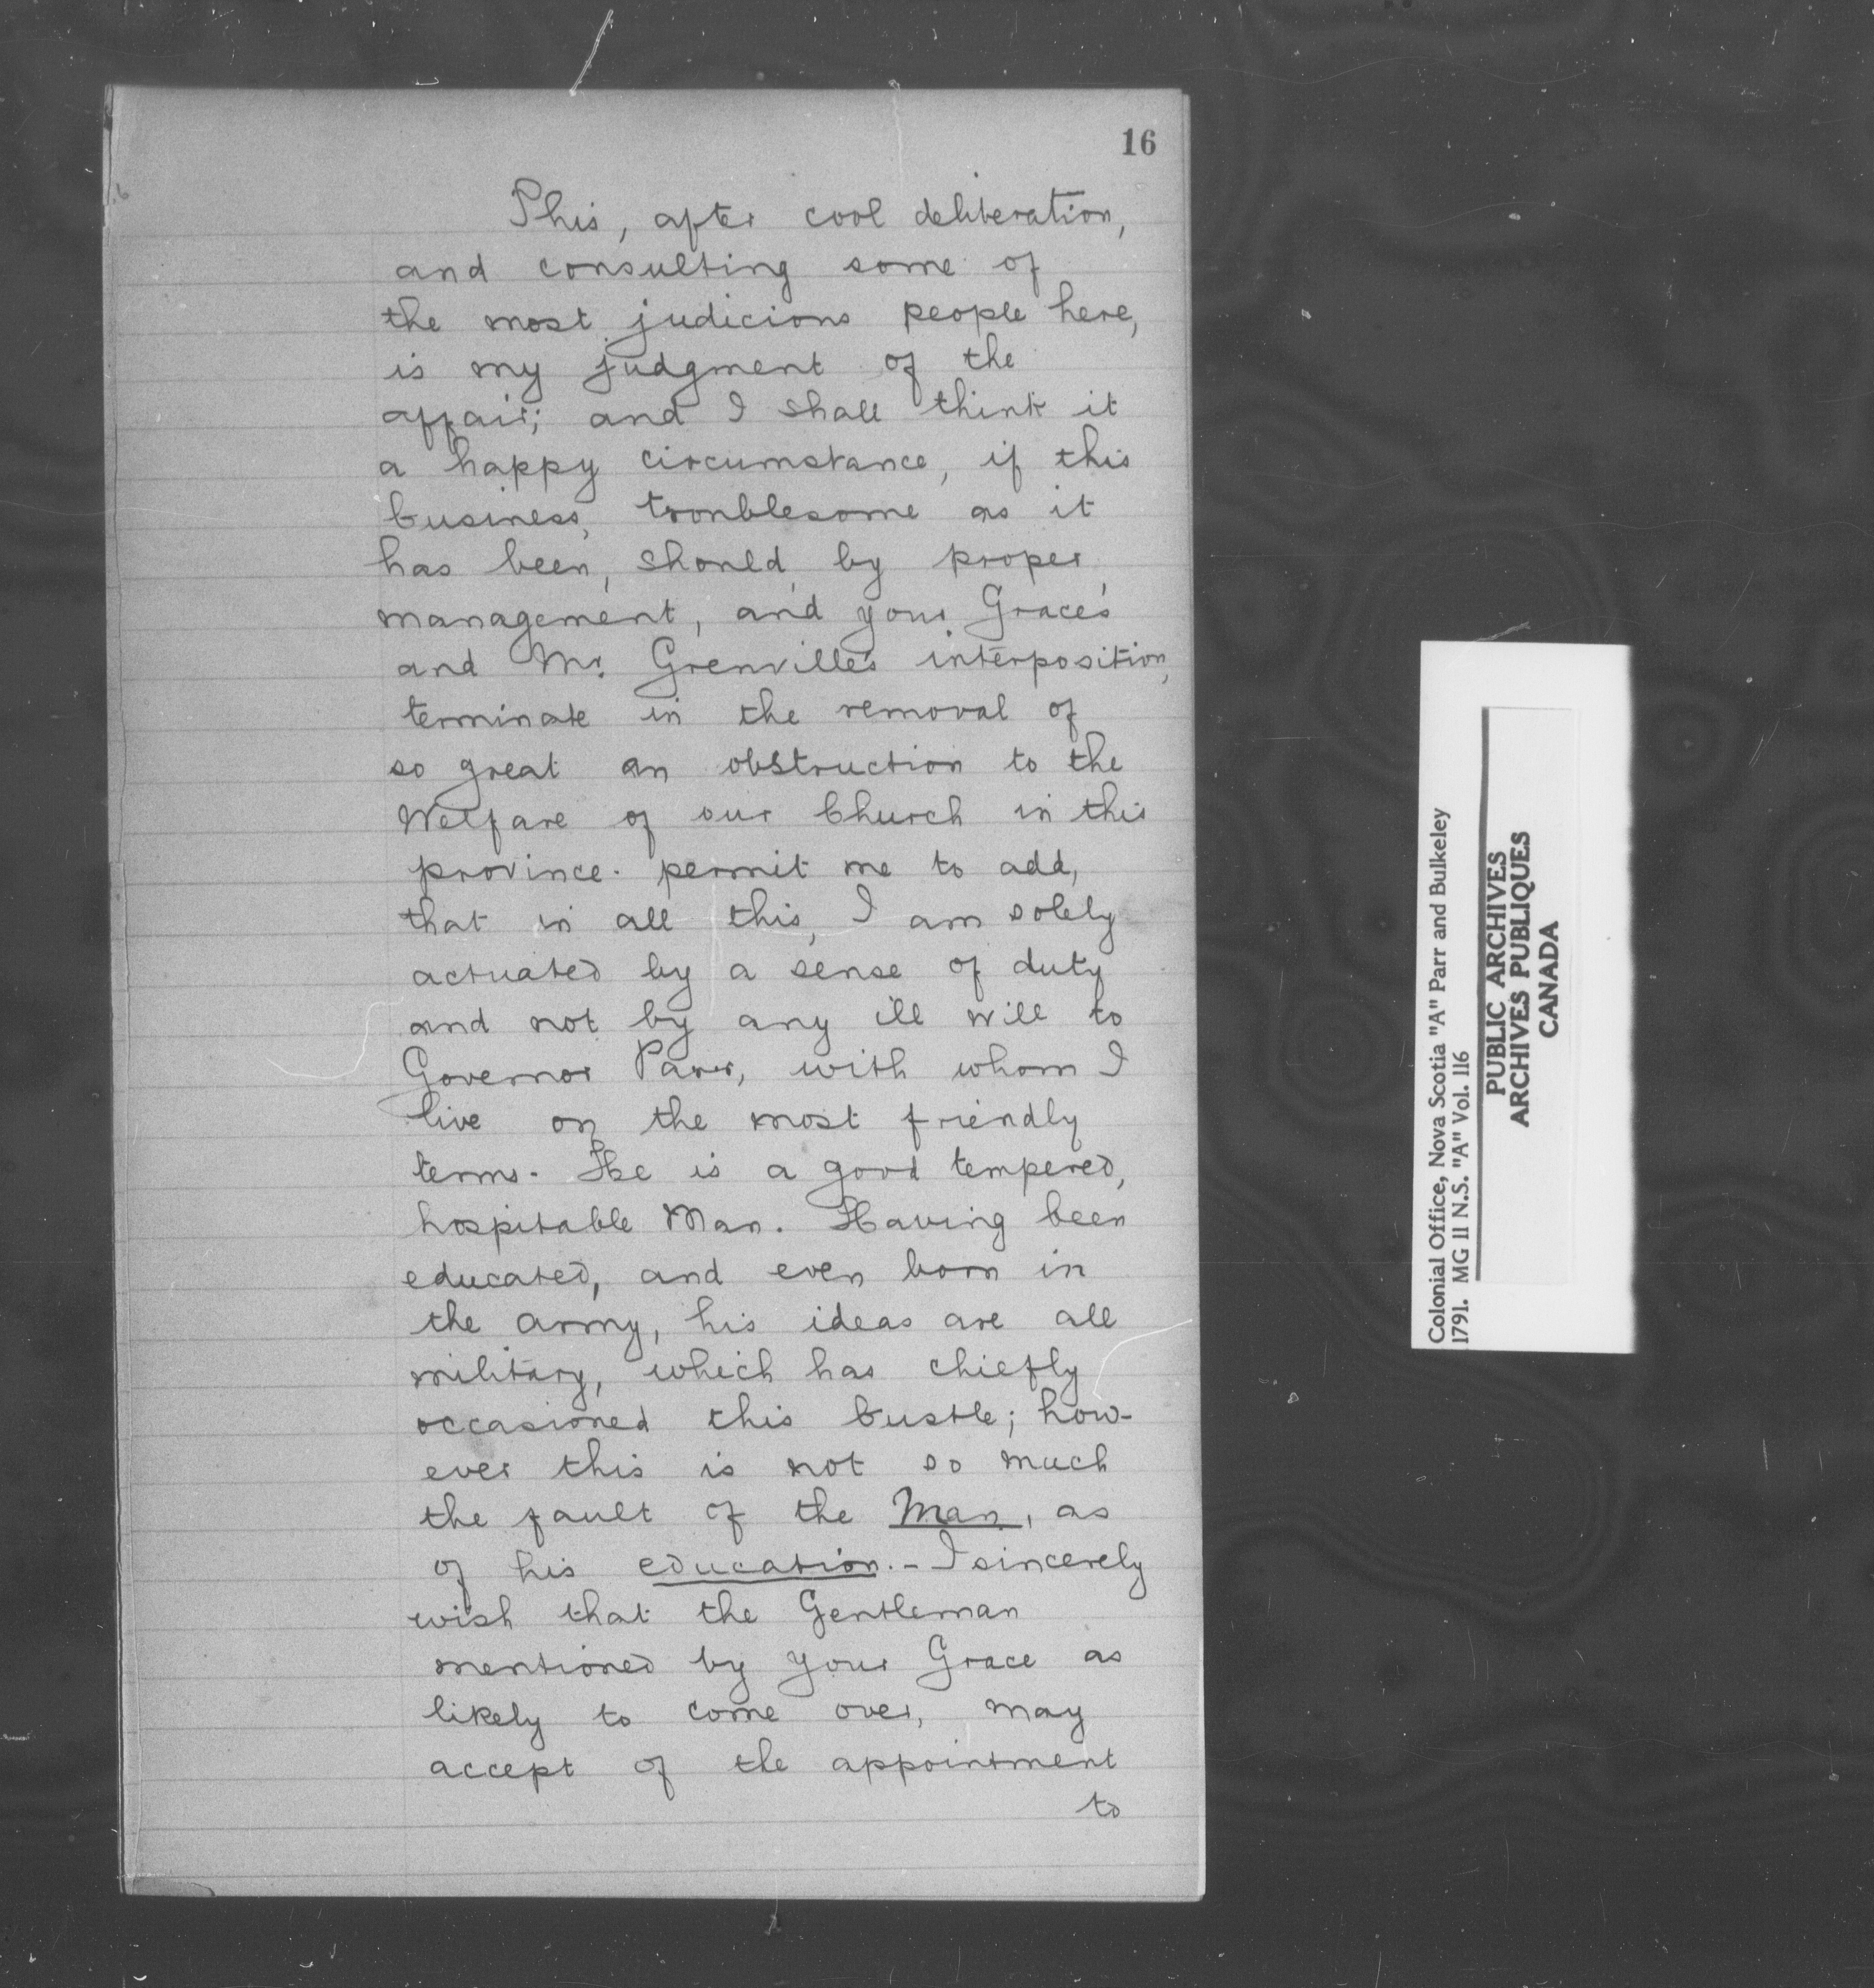 16
This, after cool deliberation,
and consulting some of
the most judicious people here,
is my judgment of the
affair; and I shall think it
a happy circumstance, if this
business, troublesome as it
has been, should, by proper
management, and your Grace's
and Mr. Grenville's interposition,
terminate in the removal of
so great an obstruction to the
Welfare of our Church in this
province. permit me to add,
that in all this, I am solely
actuated by a sense of duty
and not by any ill will to
Governor Parr, with whom I
live on the most friendly
terms. He is a good tempered,
hospitable Man. Having been
educated, and even born in
the army, his ideas are all
military, which has chiefly
occasioned this bustle; how-
ever this is not so much
the fault of the Man, as
of his education. - I sincerely
wish that the Gentleman
mentioned by your Grace as
likely to come over, may
accept of the appointment
to
Colonial Office, Nova Scotia "A" Parr and Bulkeley
1791. MG 11 N.S. "A" Vol. 116
PUBLIC ARCHIVES
ARCHIVES PUBLIQUES
CANADA